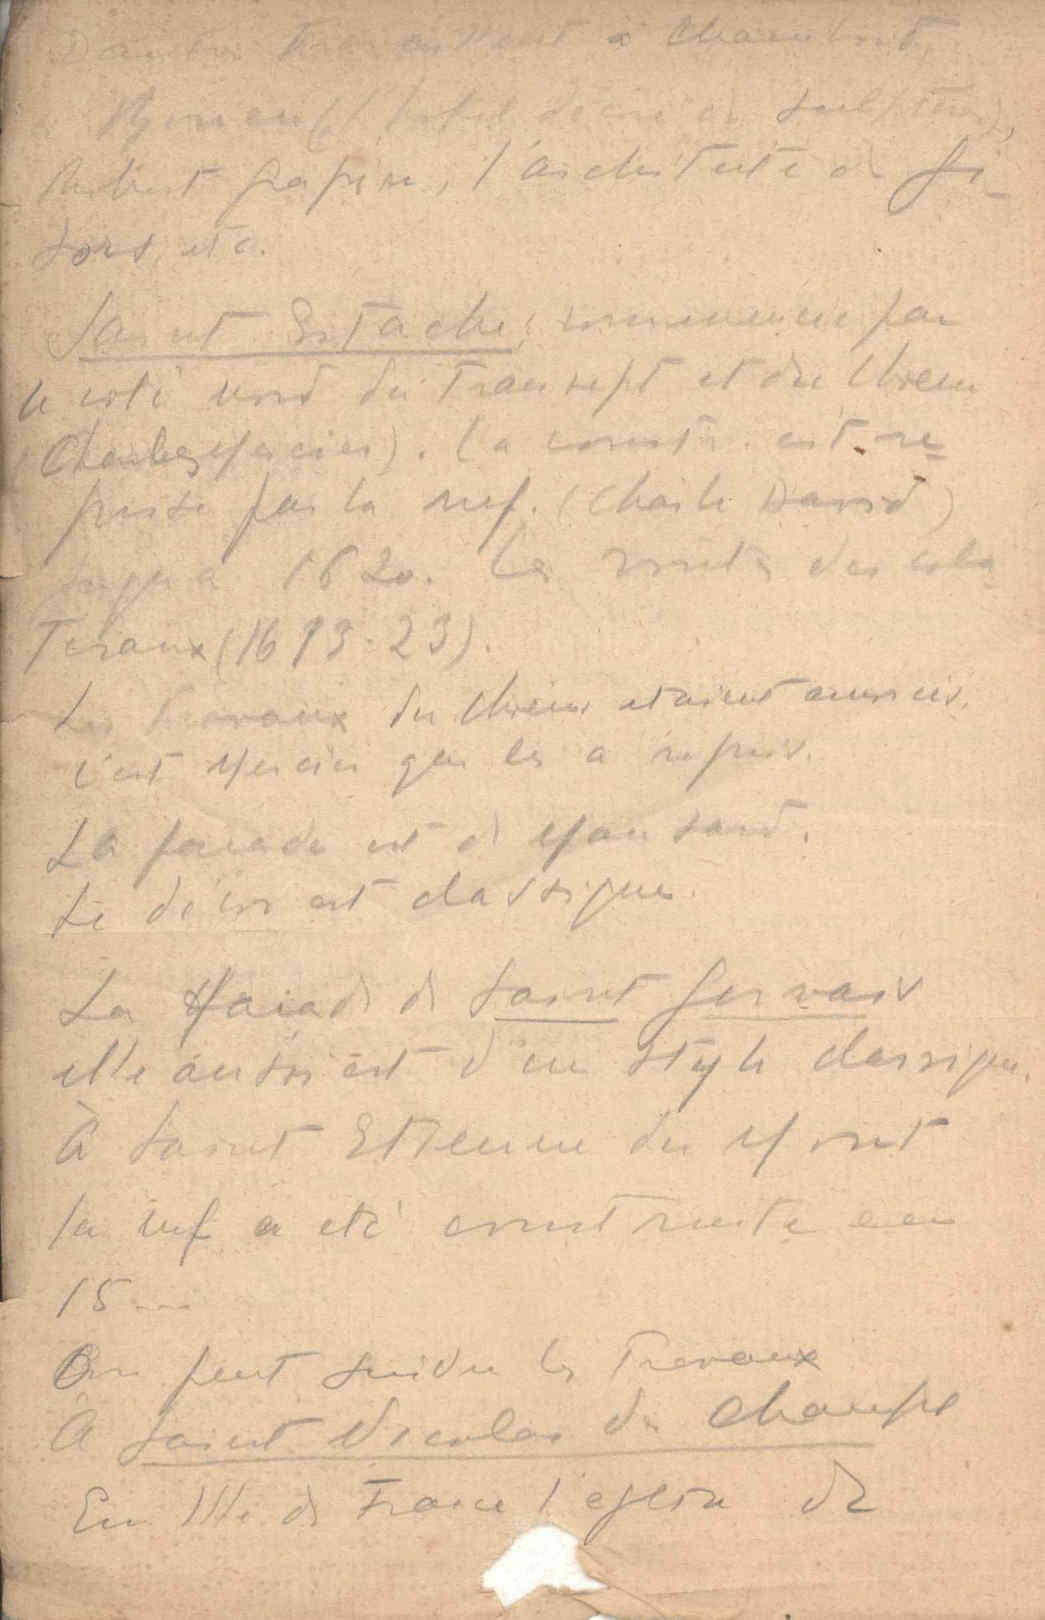 D'autres travaillent à Chambord,
à
Robert Grapin, l'architecte de Gi-
sors, etc.
Saint Estache, commencée par
le coté nord du transept et du choeur
(Charles Mercier). La constr. est re-
prise par la nef. (Charle David)
jusqu'a 1620. Les voutes des cola
teraux (1613-23).
Les travaux du choeur etaient
c'est Mercier qui les a repris.
La facade est de Mansard.
Le décor est classique.
La facade de Saint Gervais
elle aussi est d'un style classique.
À Saint Etienne du Mont
la nef a eté construite en
15...
On peut suivre les travaux
à Saint Nicolas des Champs
En Ille de France l'eglise de